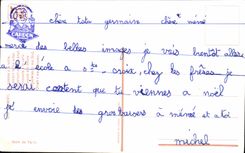 chère tata germaine chère mémé
merci des belles images je vois bientôt aller
à l'école a ste croix, chez les frêres je
serai content que tu viennes a noël
je envoie des gros baisers à mémé et a toi
michel